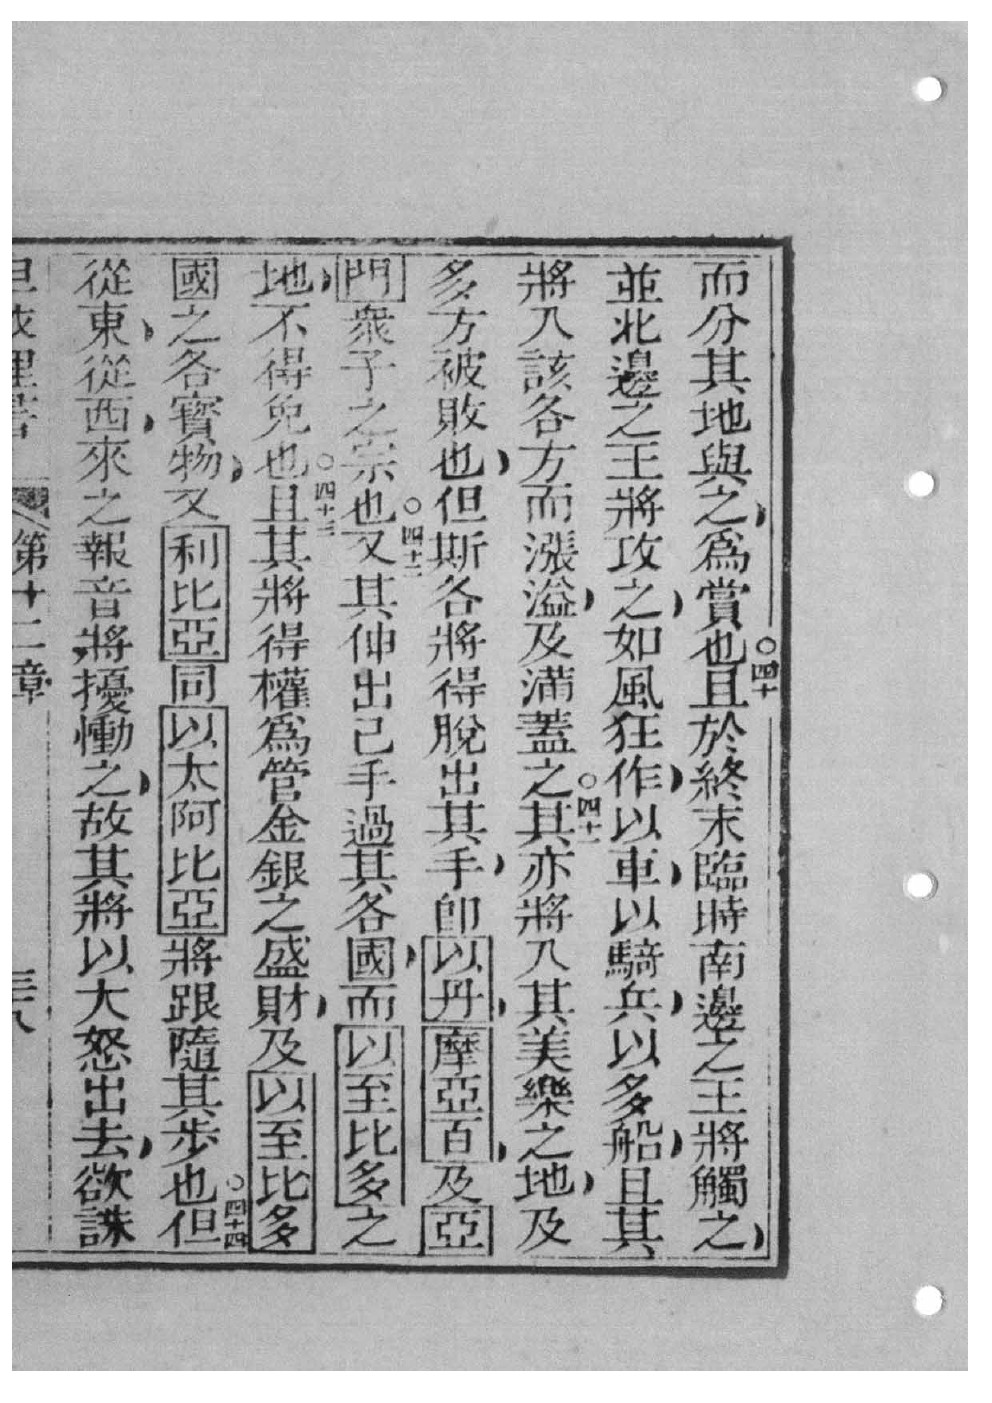 而分其地與之為賞也○四十且於終末臨時南邊之王將觸之
並北邊之王將攻之如風狂作以車以騎兵以多船且其
將入該各方而漲溢及滿蓋之○四十一其亦將入其美樂之地及
多方被敗也但斯各將得脫出其手卽以丹摩亞百及亞
門衆子之宗也○四十二又其伸出己手過其各國而以至比多之
地不得免也○四十三且其將得權為管金銀之盛財及以至比多
國之各寶物又利比亞同以太阿比亞將跟隨其步也○四十四但
從東從西來之報音將擾慟之故其將以大怒出去欲誅
第十二章